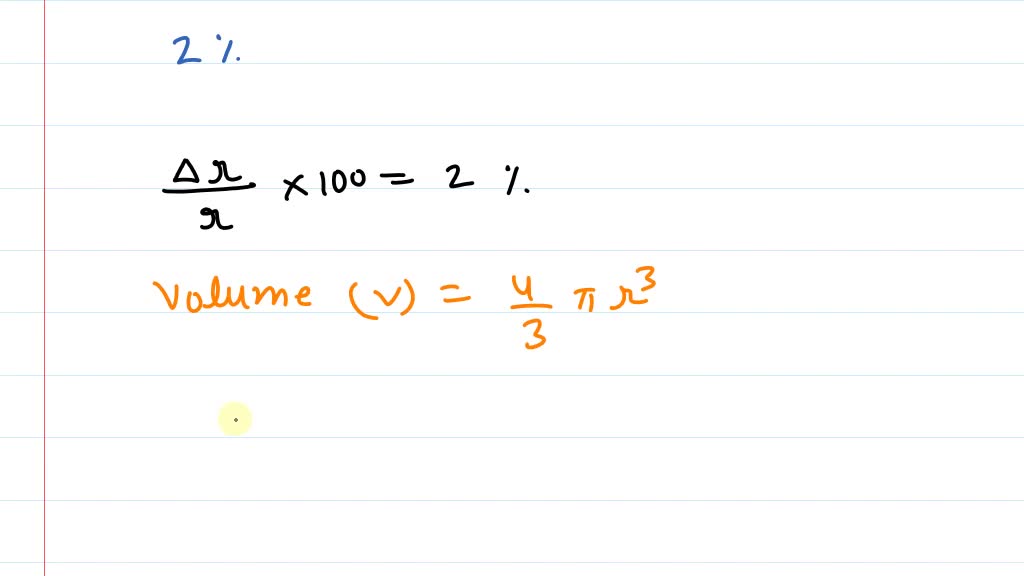 2 %
Δr/r × 100 = 2 %
Volume (v) = 4/3 π r³